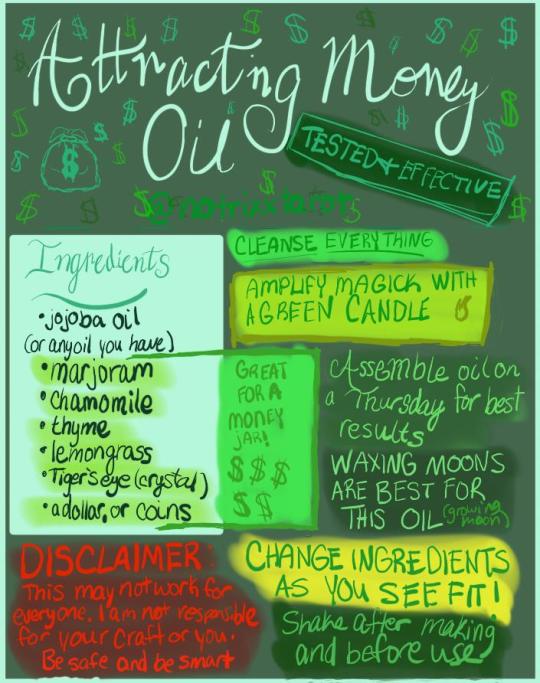 Attracting Money
Oil
TESTED & EFFECTIVE
CLEANSE EVERYTHING
Ingredients
AMPLIFY MAGICK WITH
A GREEN CANDLE
• jojoba oil
(or any oil you have)
• marjoram
• chamomile
• thyme
• lemongrass
• Tiger's eye (crystal)
• a dollar, or coins
GREAT
FOR A
MONEY
JAR!
$$$
$$
Assemble oil on
a Thursday for best
results
WAXING MOONS
ARE BEST FOR
THIS OIL (growing moon)
DISCLAIMER:
This may not work for
everyone. I am not responsible
for your craft or you.
Be safe and be smart
CHANGE INGREDIENTS
AS YOU SEE FIT!
Shake after making
and before use